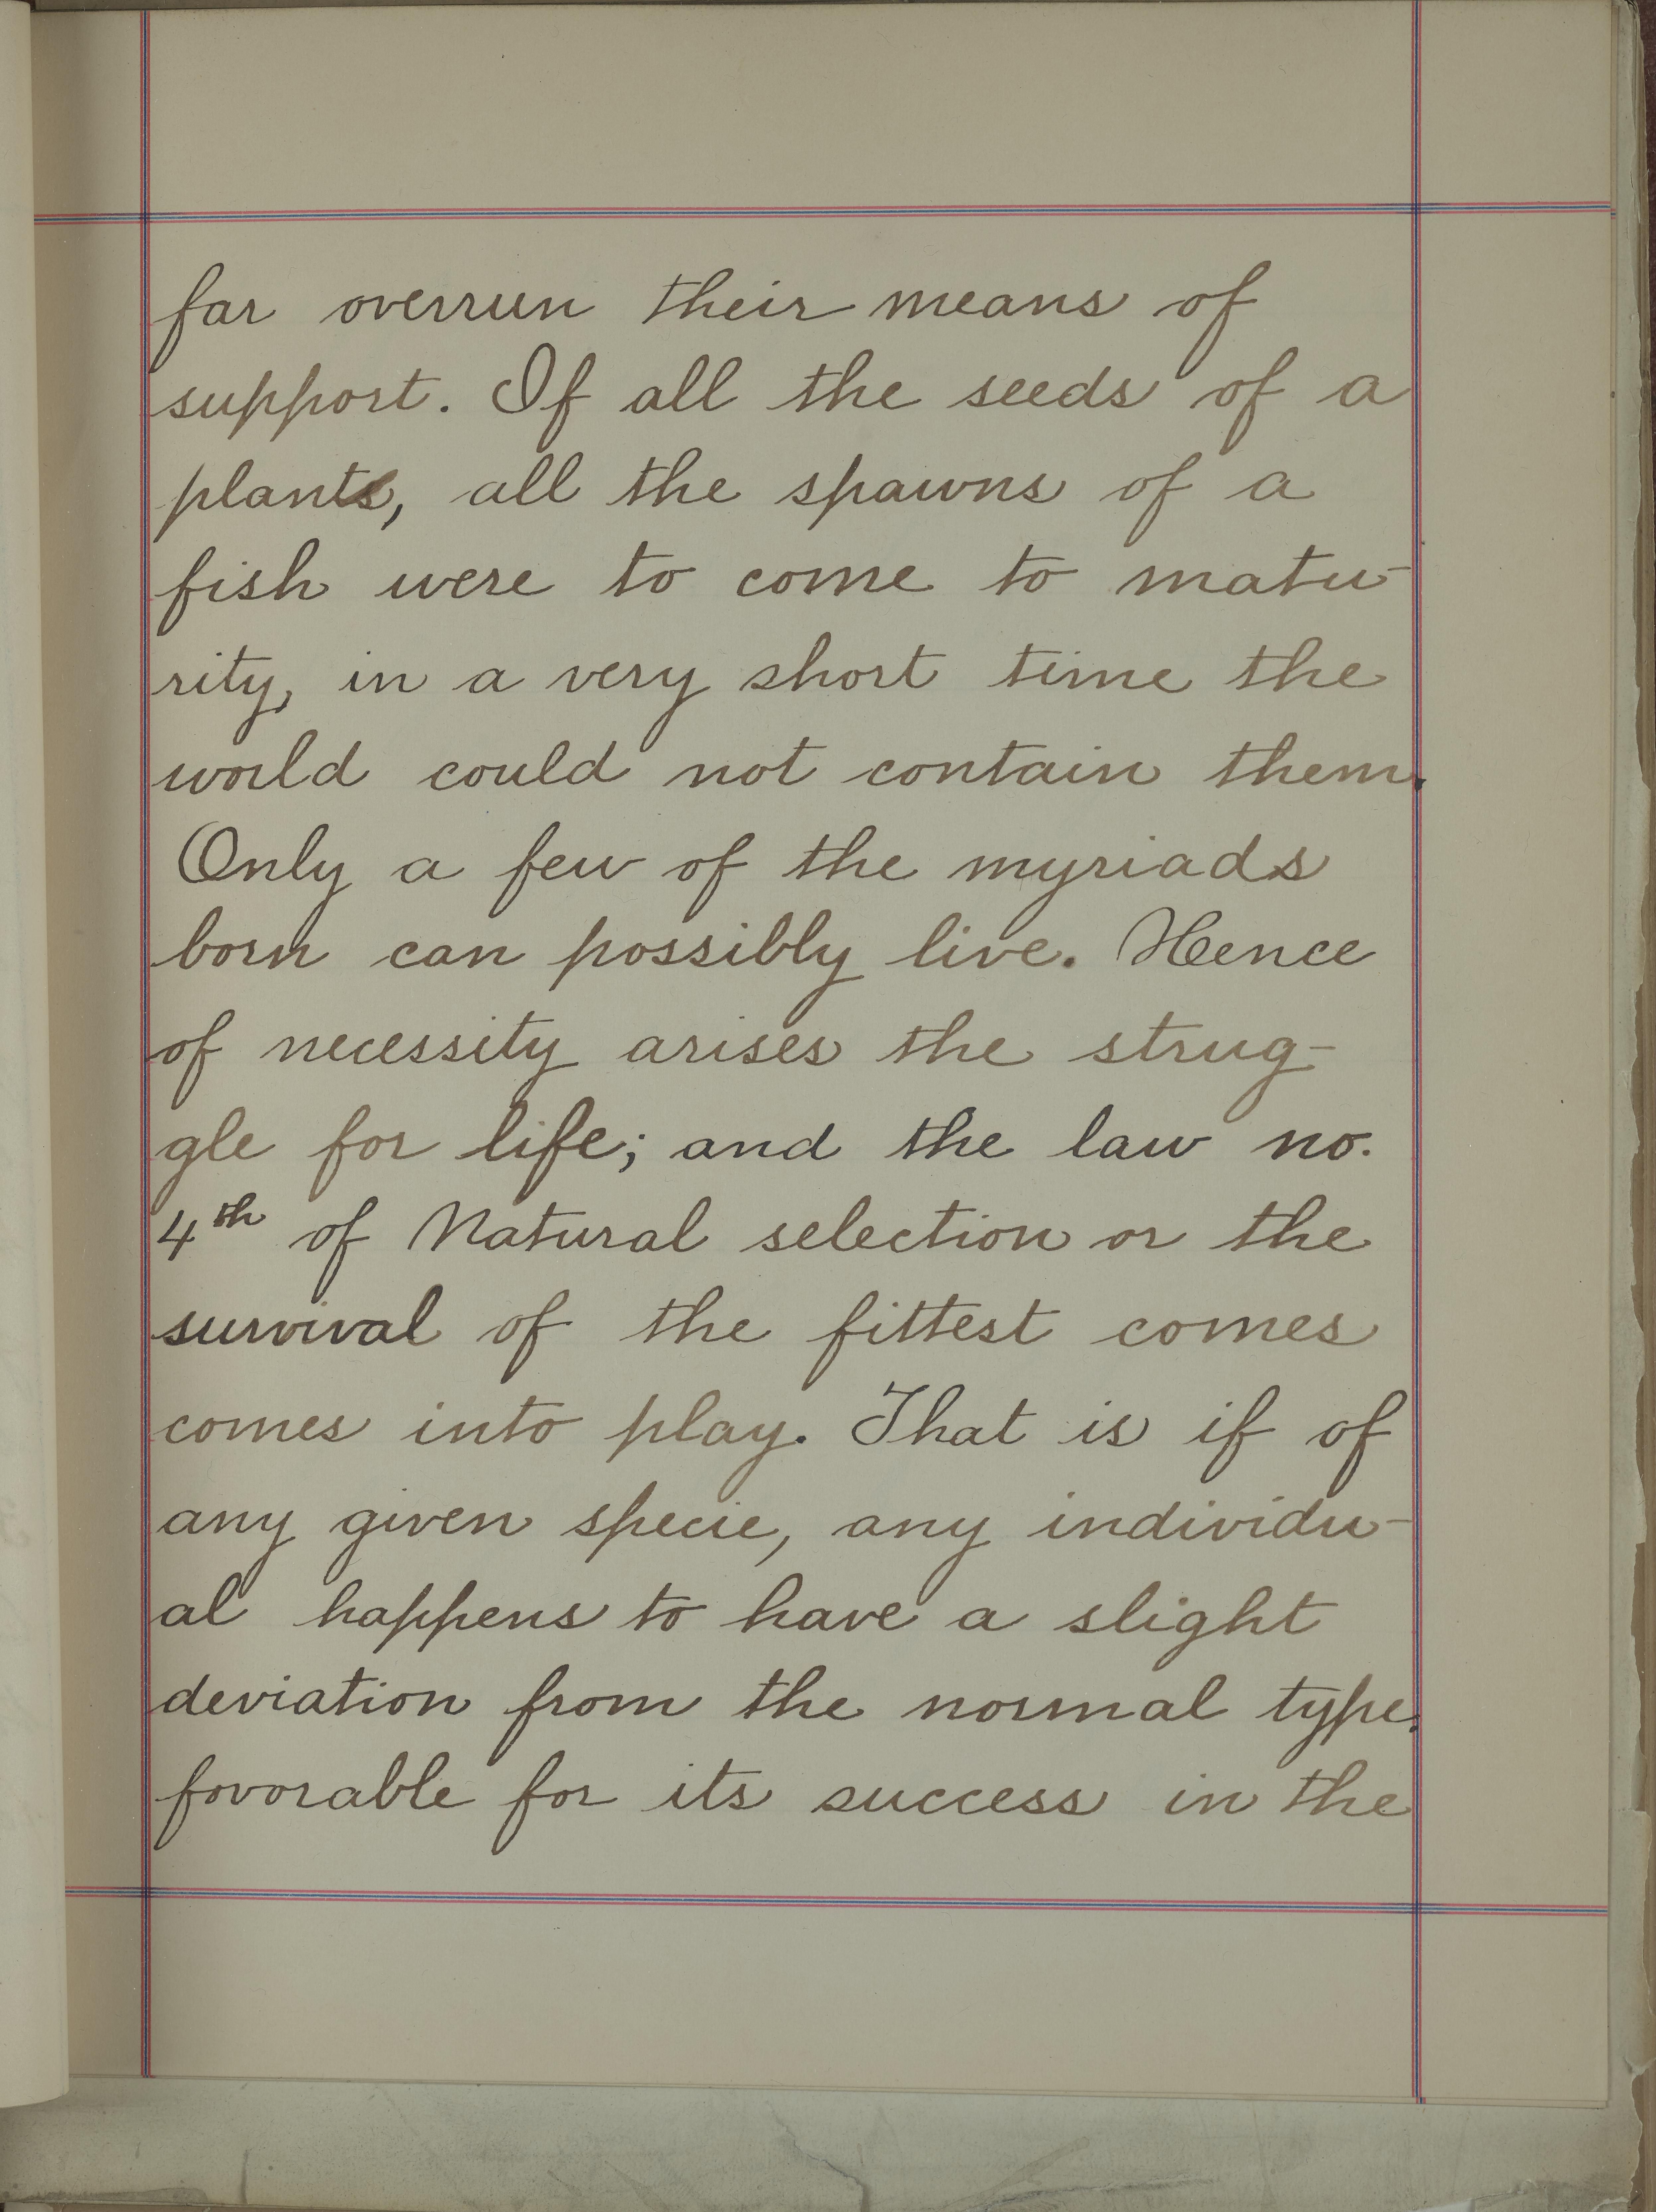 far overrun their means of
support. If all the seeds of a
plants, all the spawns of a
fish were to come to matu-
rity, in a very short time the
world could not contain them.
Only a few of the myriads
born can possibly live. Hence
of necessity arises the strug-
gle for life; and the law no.
4th of Natural selection or the
survival of the fittest comes
comes into play. That is if of
any given specie, any individu-
al happens to have a slight
deviation from the normal type,
favorable for its success in the